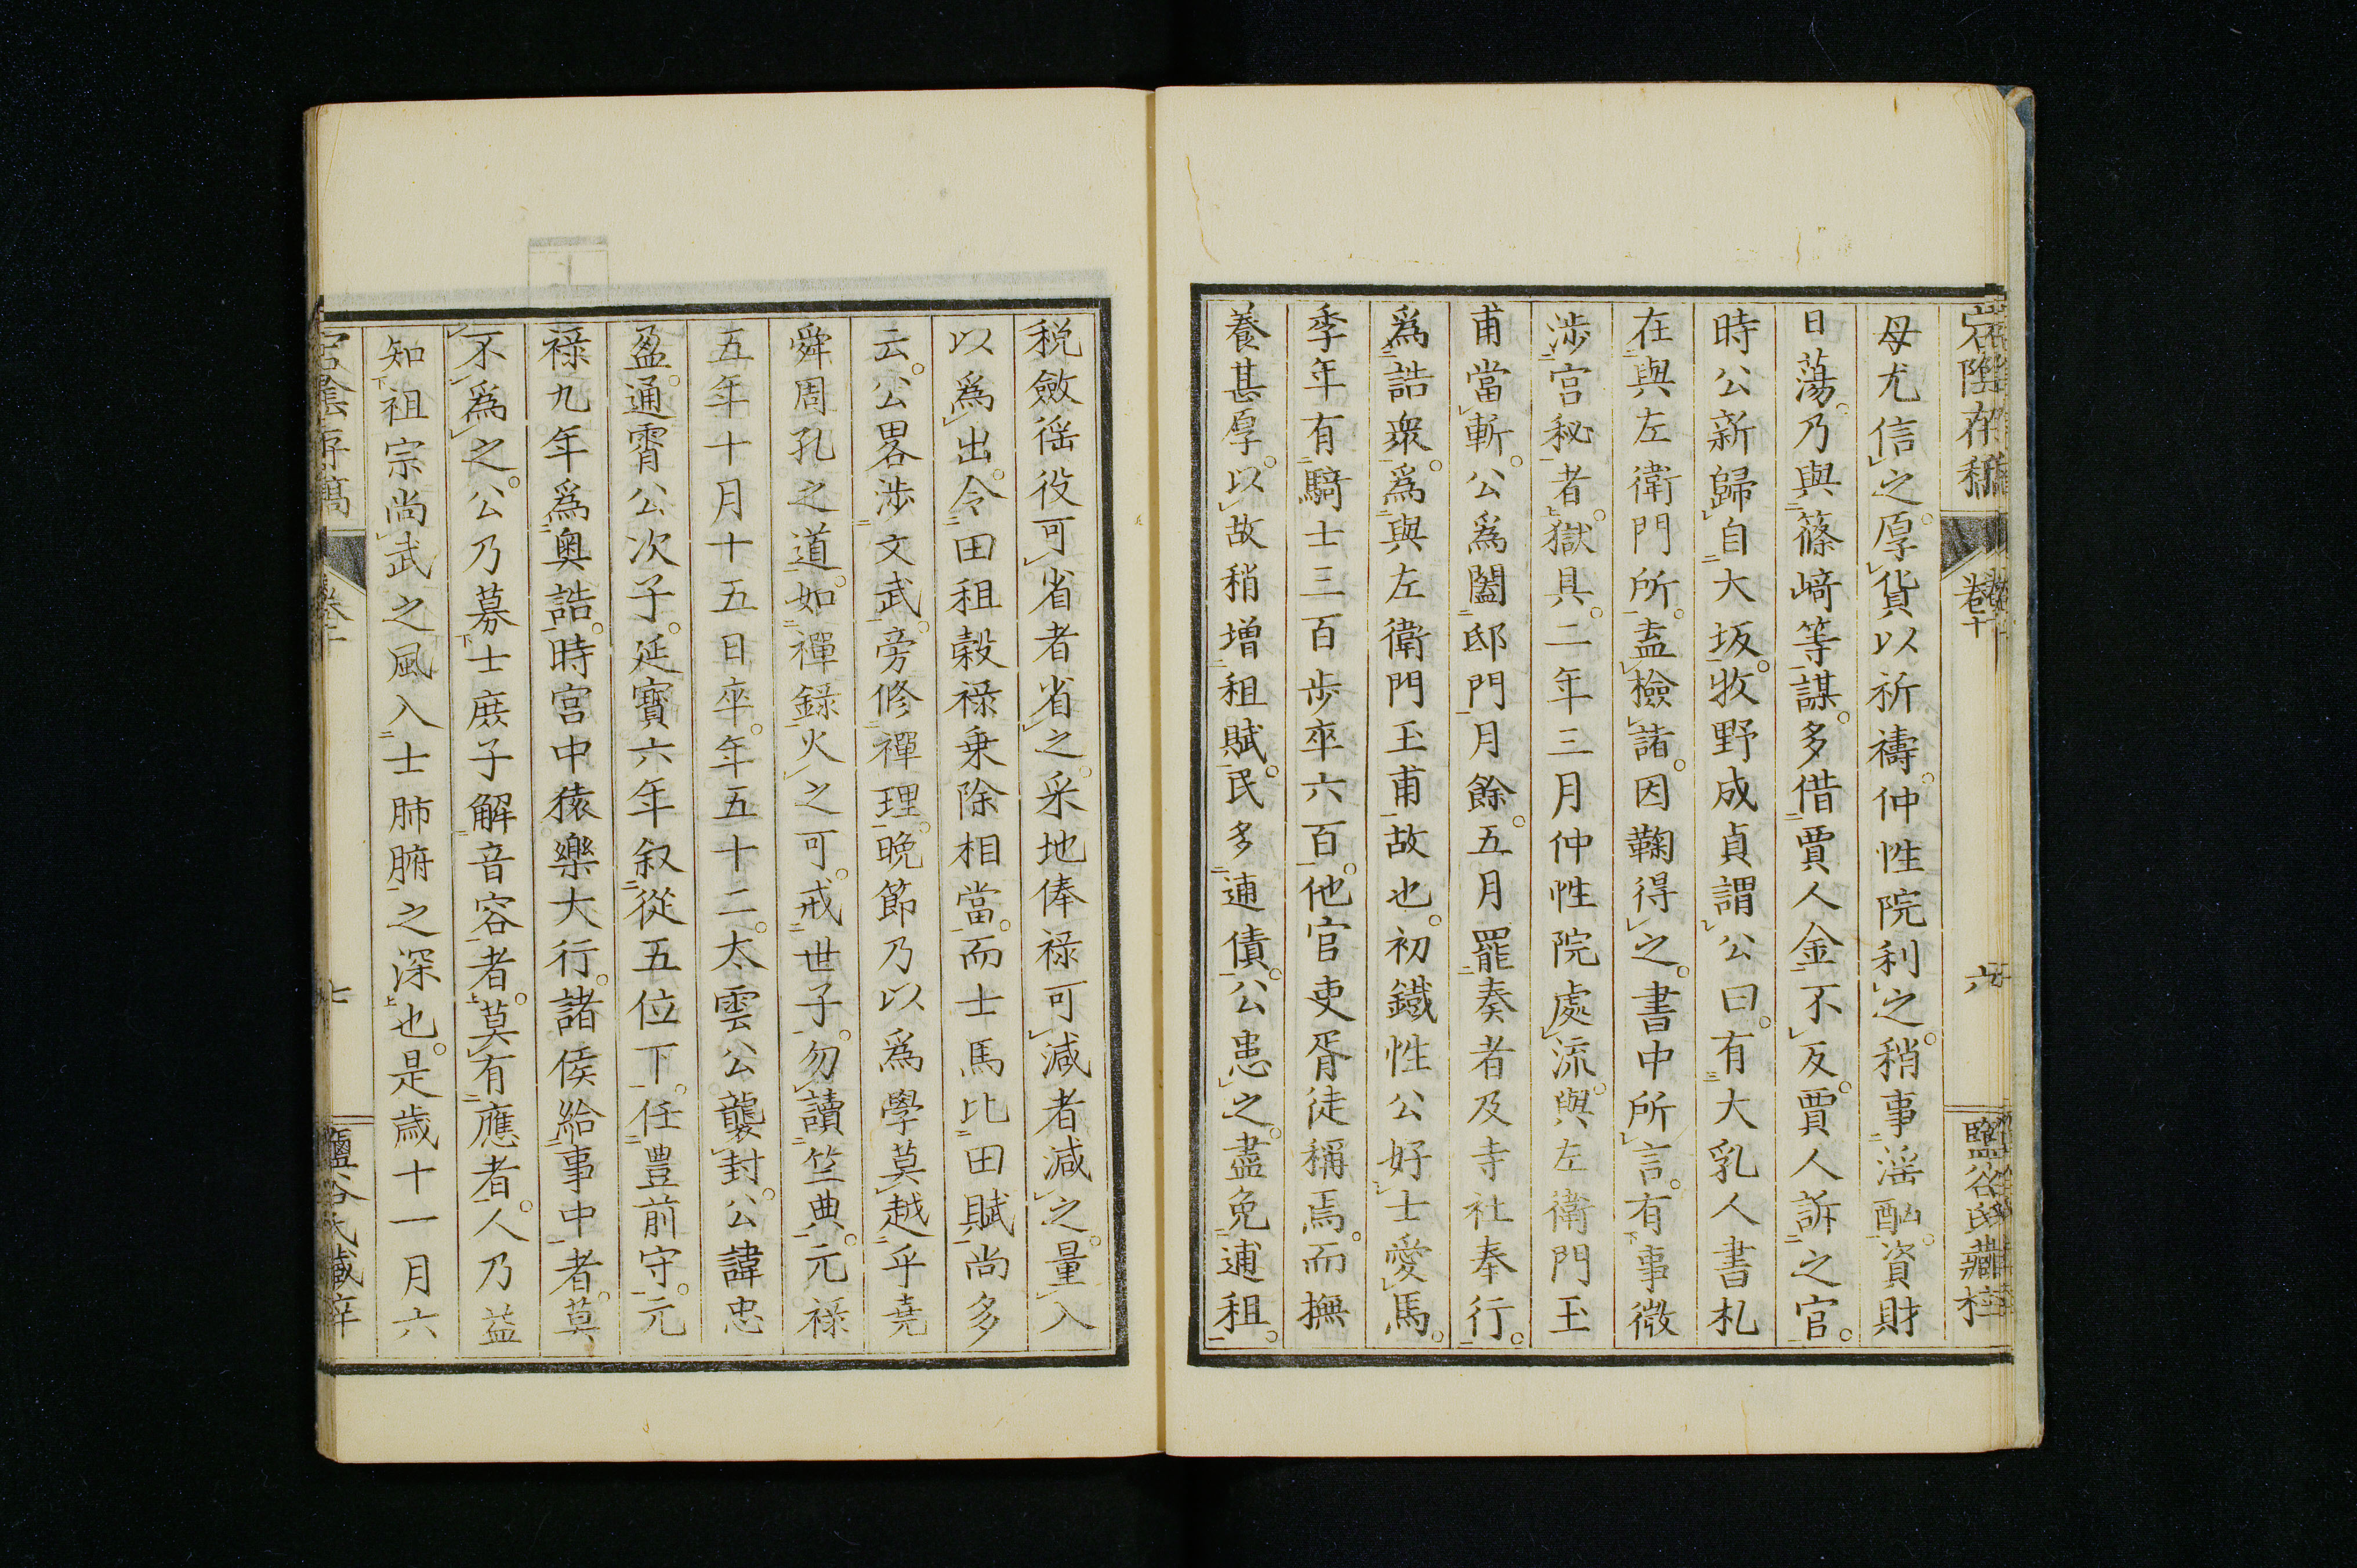 宕陰存稿 卷十 六 鹽谷氏藏梓
母尤信之厚貨以祈禱仲性院利之稍事淫酗資財
日蕩乃與篠﨑等謀多借賈人金不反賈人訴之官
時公新歸自大坂牧野成貞謂公曰有大乳人書札
在與左衛門所盍檢諸因鞠得之書中所言有事微
涉宮秘者獄具二年三月仲性院處流與左衛門玉
甫當斬公爲闔邸門月餘五月罷奏者及寺社奉行
爲誥衆爲與左衛門玉甫故也初鐵性公好士愛馬
季年有騎士三百歩卒六百他官吏胥徒稱焉而撫
養甚厚以故稍增租賦民多逋債公患之盡免逋租
税斂徭役可省者省之采地俸祿可減者減之量入
以爲出令田租穀祿乗除相當而士馬比田賦尚多
云公畧涉文武旁修禪理晩節乃以爲學莫越乎堯
舜周孔之道如禪錄火之可戒世子勿讀竺典元祿
五年十月十五日卒年五十二太雲公襲封公諱忠
盈通霄公次子延寶六年叙從五位下任豊前守元
祿九年爲奥誥時宮中猿樂大行諸侯給事中者莫
不爲之公乃募士庻子解音容者莫有應者人乃益
知祖宗尚武之風入士肺腑之深也是歳十一月六
宕陰存稿 卷十 七 鹽谷氏藏梓